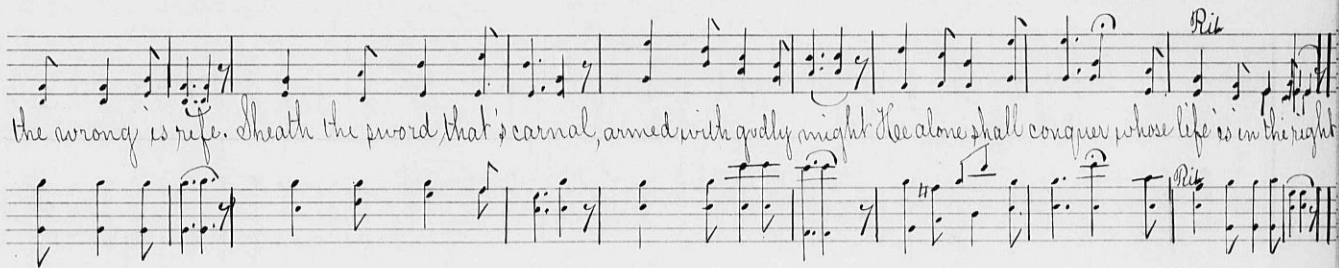 Rit
the wrong is rife. Sheath the sword, that's carnal, armed with godly might Hee alone shall conquer whose life is in the right
Rit